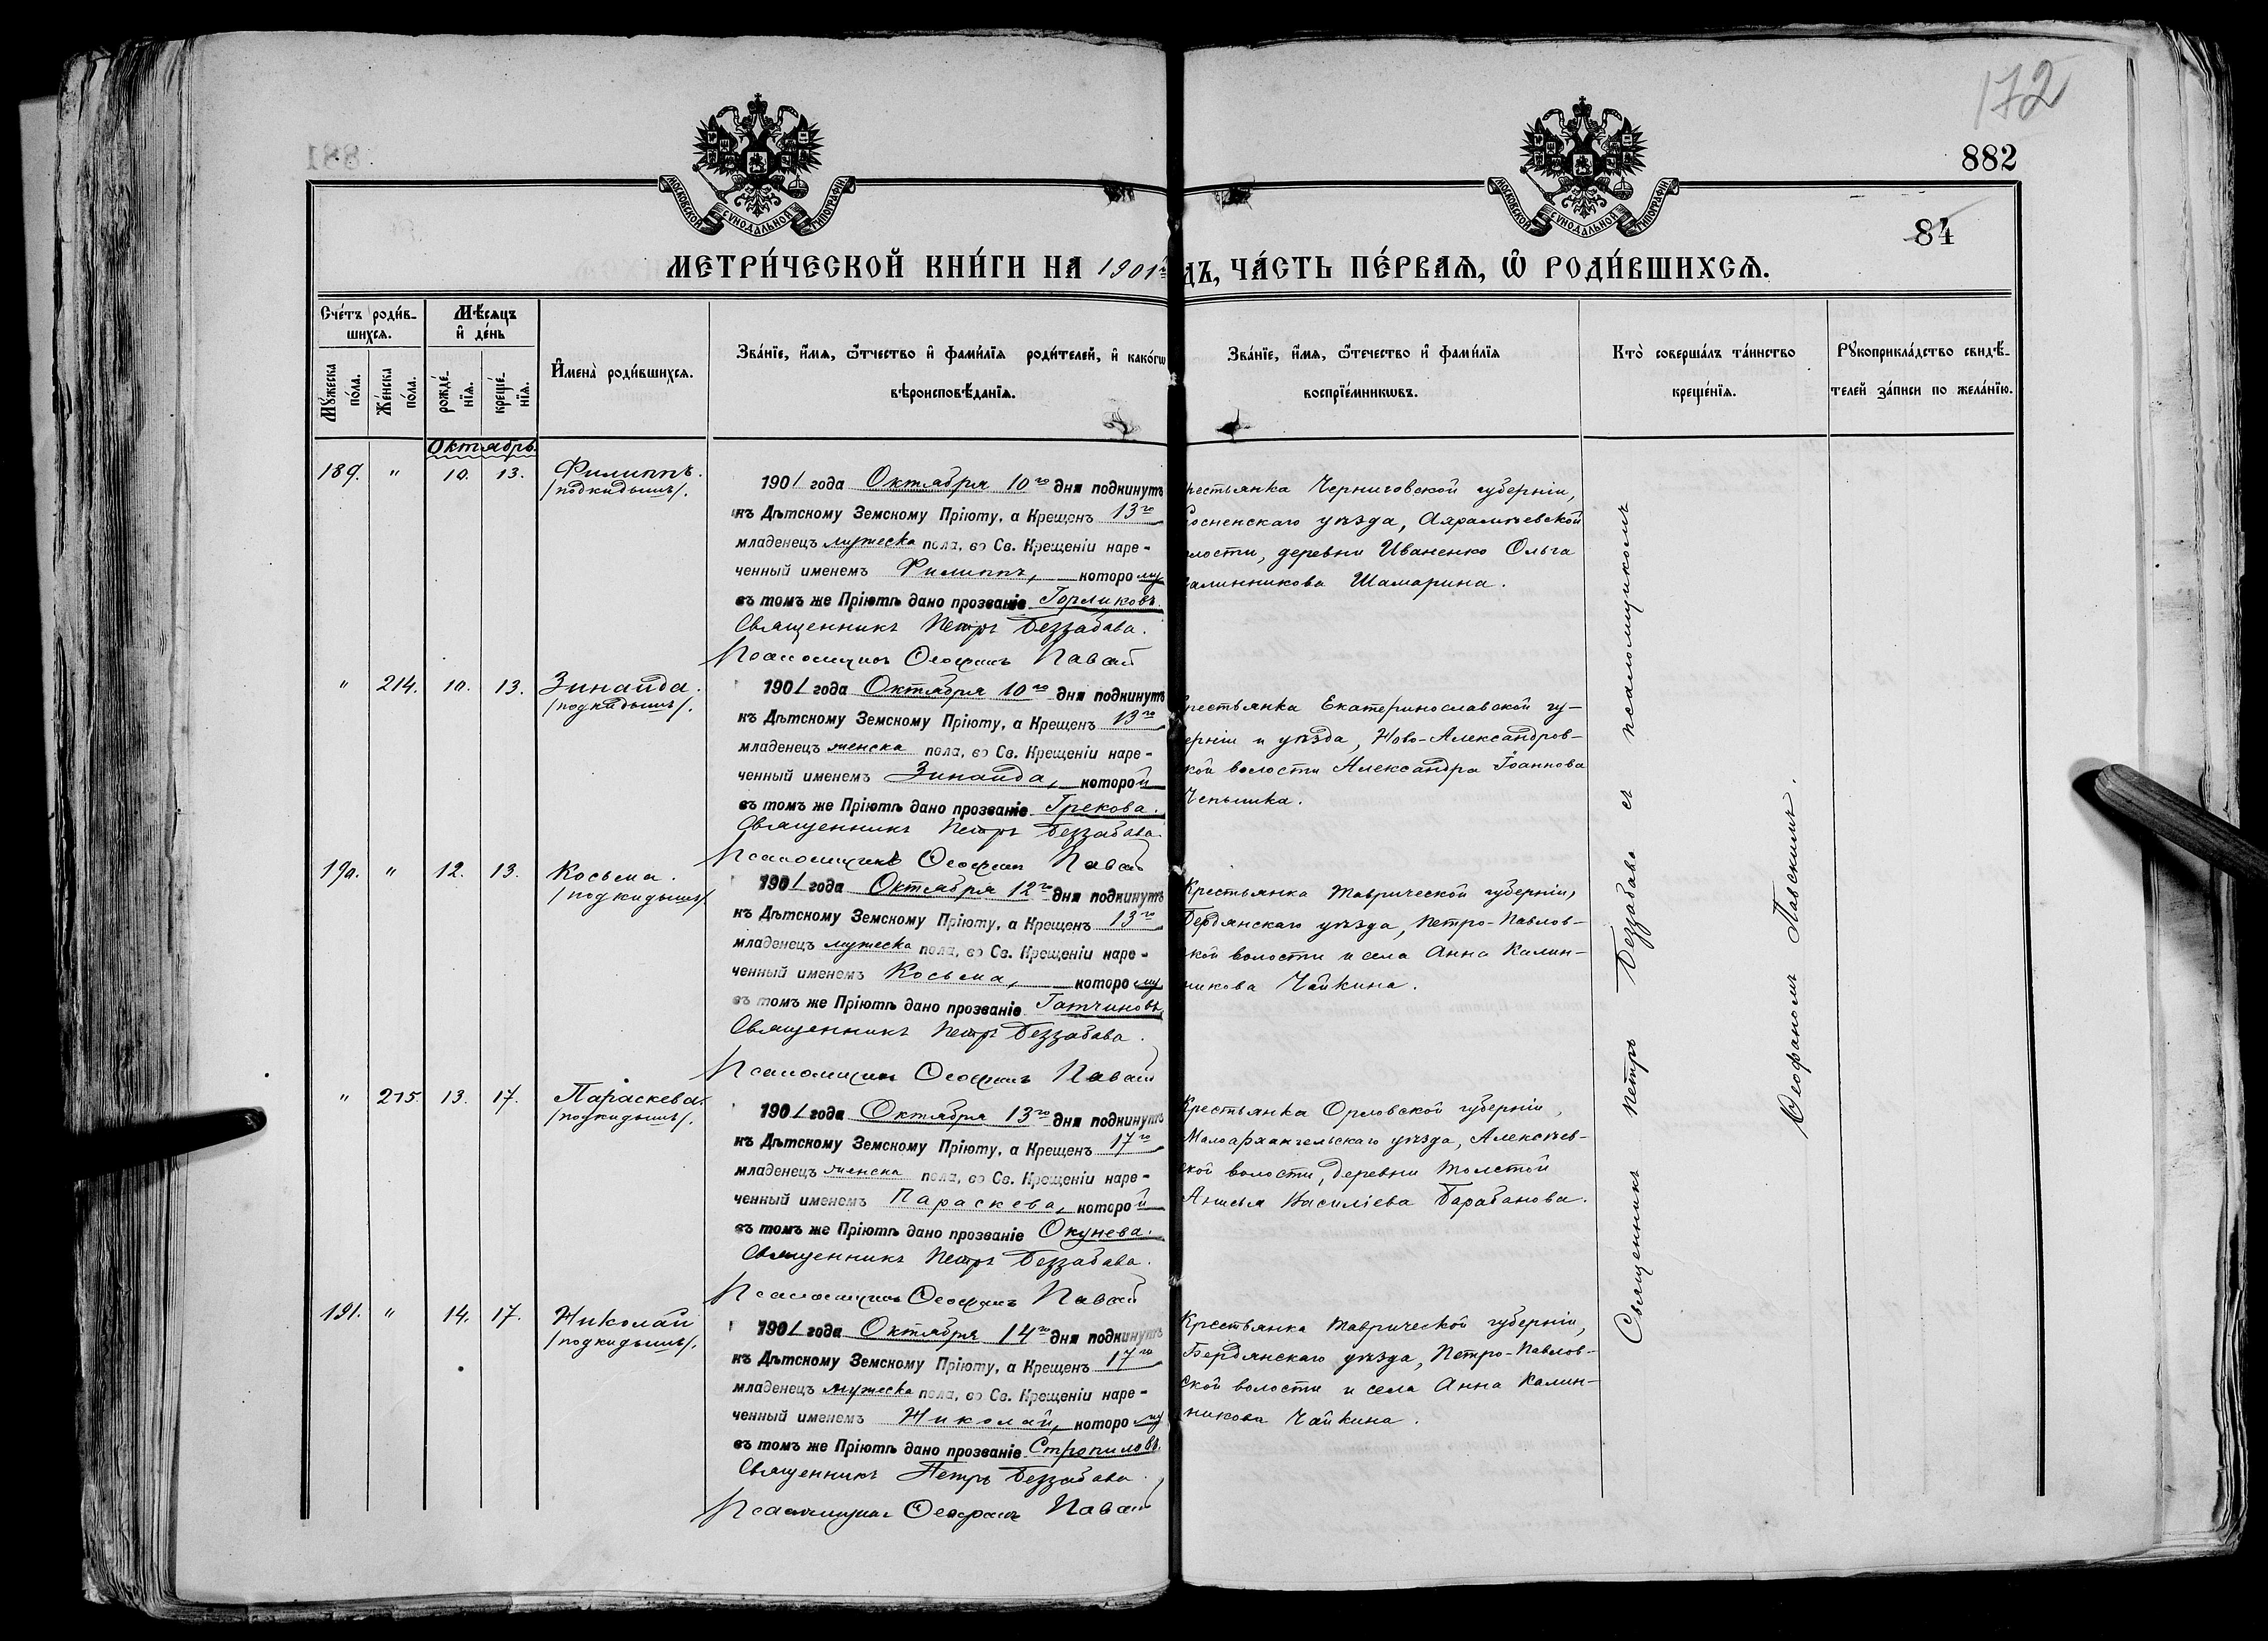 172
882
84
МОСКОВСКОЙ СѴНОДАЛЬНОЙ ТИПОГРАФІИ.
МОСКОВСКОЙ СѴНОДАЛЬНОЙ ТИПОГРАФІИ.
МЕТРИ́ЧЕСКОЙ КНИ́ГИ НА 1901 дъ, ЧА́СТЬ ПЕ́РВАЯ, Ѽ РОДИ́ВШИХСЯ.
Сче́тъ роди́в-
шихся.
Мꙋ́жеска по́ла.
Же́нска по́ла.
Мѣ́сяцъ и҆ де́нь
рожде́-нїя.
креще́-нїя.
И҆мена̀ роди́вшихся.
Зва́нїе, и҆́мя, ѻ҆́тчество и҆ фами́лїя роди́телей, и҆ како́гѡ
вѣроисповѣ́данїя.
Зва́нїе, и҆́мя, ѻ҆те́чество и҆ фами́лїя
воспрїе́мникѡвъ.
Кто̀ соверша́лъ та́инство
креще́нїя.
Рꙋкоприкла́дство свидѣ́-
телей за́писи по жела́нїю.
Октябрь.
189. " 10. 13. Филиппъ.
/подкидышъ/.
1901 года Октября 10го дня подкинутъ
къ Дѣтскому Земскому Пріюту, а Крещенъ 13го
младенецъ мужеска пола, во Св. Крещеніи наре-
ченный именемъ Филиппъ, которому
въ томъ же Пріютѣ дано прозваніе Горликовъ.
Священникъ Петръ Беззабава.
Псаломщикъ Ѳеофанъ
рестьянка Черниговской губерніи,
осненскаго уѣзда,
лости, деревни Иваненко Ольга
алинникова Шамарина.
" 214. 10. 13. Зинаида.
/подкидышъ/.
1901 года Октября 10го дня подкинутъ
къ Дѣтскому Земскому Пріюту, а Крещенъ 13го
младенецъ женска пола, во Св. Крещеніи наре-
ченный именемъ Зинаида, которой
въ томъ же Пріютѣ дано прозваніе Грекова.
Священникъ Петръ Беззабава
Псаломщикъ Ѳеофан
рестьянка Екатеринославской гу-
ерніи и уѣзда, Ново-Александров-
кой волости Александра Іоаннова
190. " 12. 13. Косьма.
/подкидышъ/
1901 года Октября 12го дня подкинутъ
къ Дѣтскому Земскому Пріюту, а Крещенъ 13го
младенецъ мужеска пола, во Св. Крещеніи наре-
ченный именемъ Косьма, которому
въ томъ же Пріютѣ дано прозваніе Гатчиновъ
Священникъ Петръ Беззабава.
Псаломщикъ Ѳеофанъ
Крестьянка Таврической губерніи,
Бердянскаго уѣзда, Петро-Павлов-
кой волости и села Анна Калин-
никова Чайкина.
" 215. 13. 17. Параскева.
/подкидышъ/.
1901 года Октября 13го дня подкинутъ
къ Дѣтскому Земскому Пріюту, а Крещенъ 17го
младенецъ женска пола, во Св. Крещеніи наре-
ченный именемъ Параскева, которой
въ томъ же Пріютѣ дано прозваніе Окунева.
Священникъ Петръ Беззабава.
Псаломщикъ Ѳеофанъ
Крестьянка Орловской губерніи,
Малоархангельскаго уѣзда, Алексѣев-
ской волости, деревни Толстой
Анисья Василіева Барабанова.
191. " 14. 17. Николай
/подкидышъ/.
1901 года Октября 14го дня подкинутъ
къ Дѣтскому Земскому Пріюту, а Крещенъ 17го
младенецъ мужеска пола, во Св. Крещеніи наре-
ченный именемъ Николай, которому
въ томъ же Пріютѣ дано прозваніе Стропиловъ.
Священникъ Петръ Беззабава.
Псаломщикъ Ѳеофанъ
Крестьянка Таврической губерніи,
Бердянскаго уѣзда, Петро-Павлов-
ской волости и села Анна Калин-
никова Чайкина.
Священникъ Петръ Беззабава съ псаломщикомъ
Ѳеофаномъ Павскимъ.